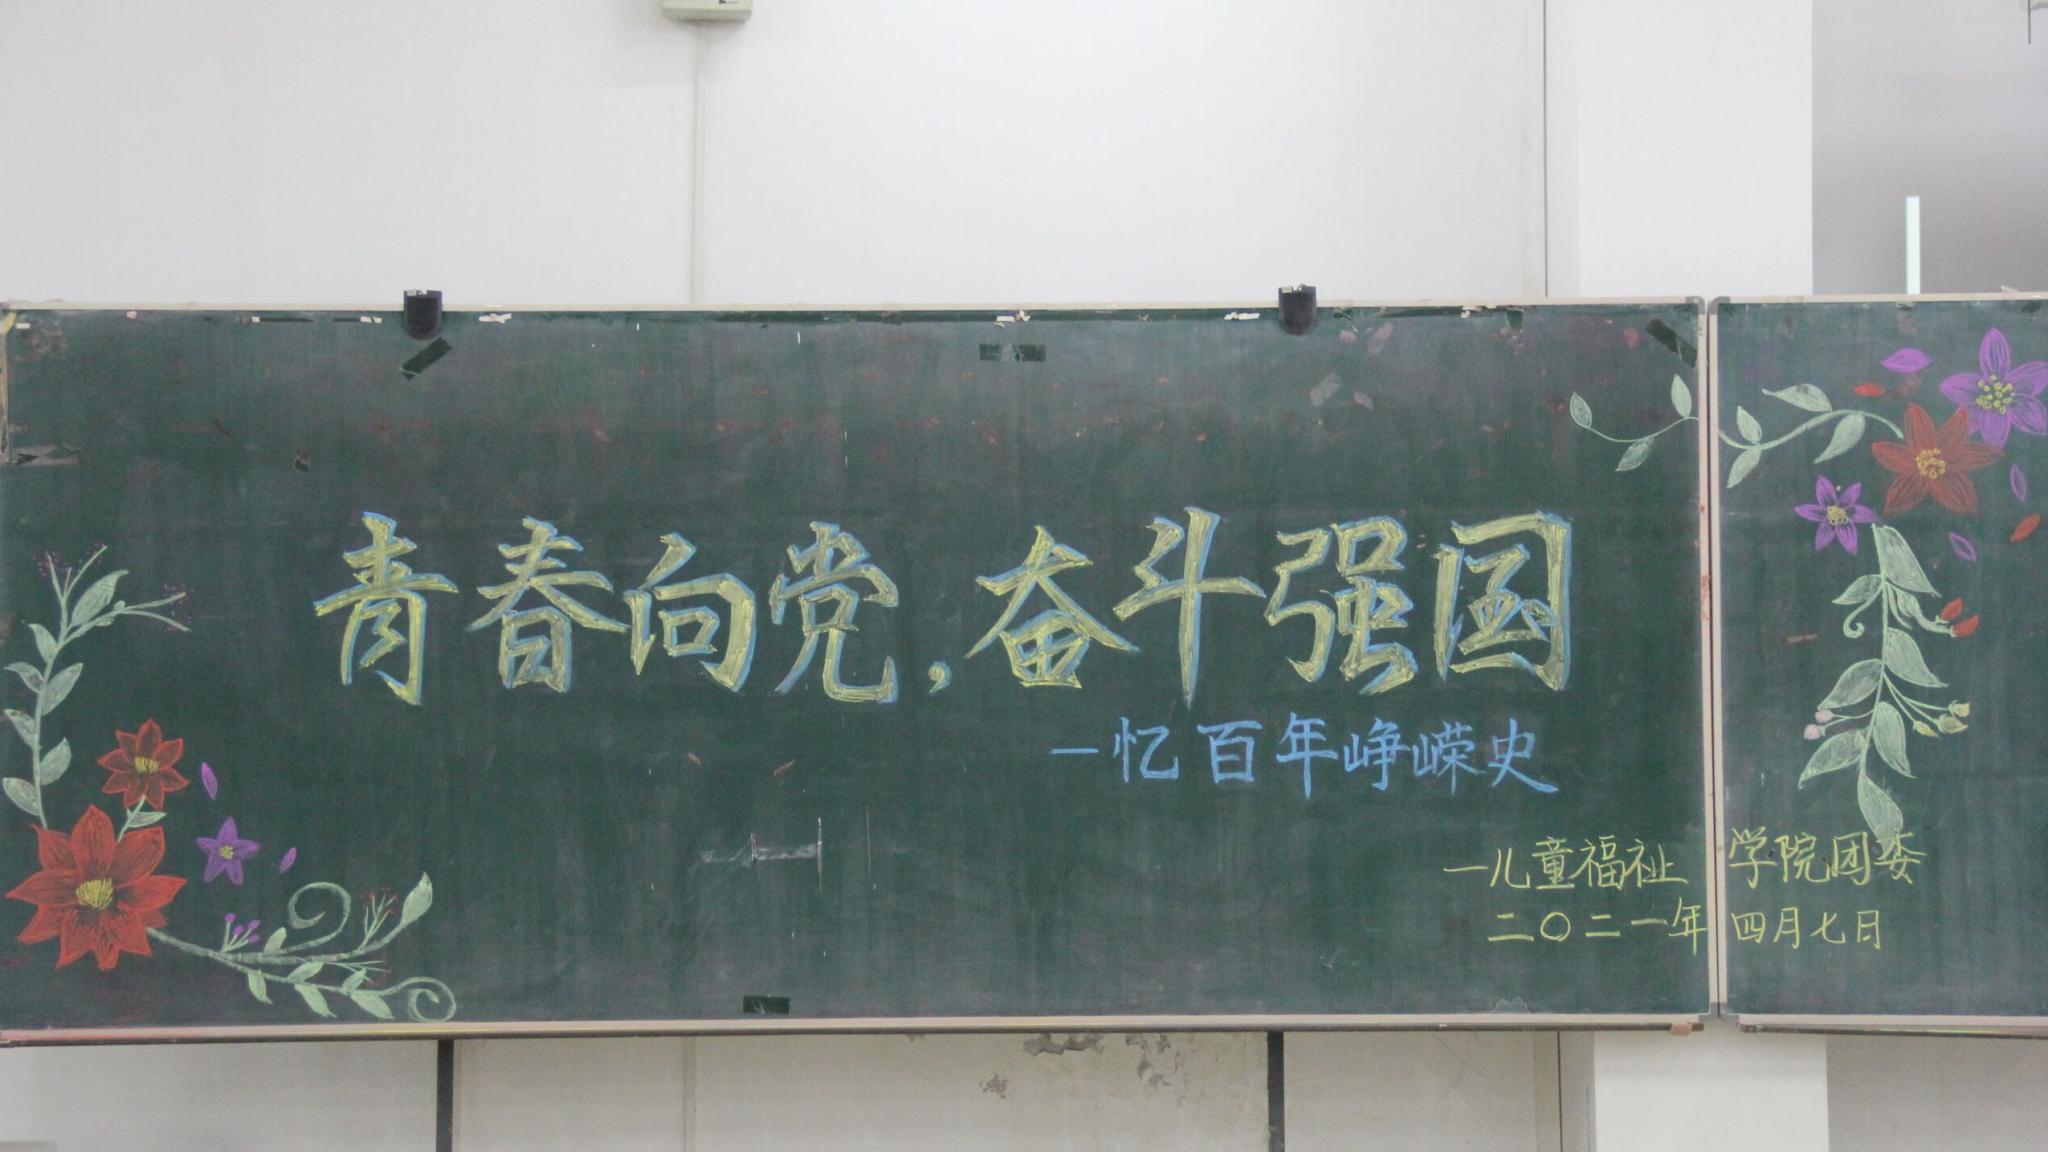 青春向党，奋斗强国
—忆百年峥嵘史
—儿童福祉学院团委
二〇二一年四月七日